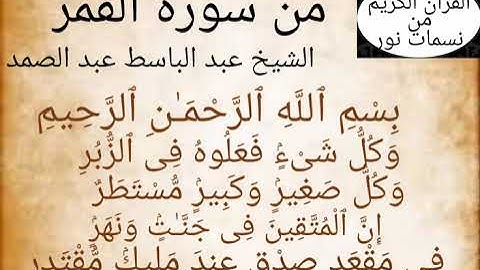 من سورة القمر
القرآن الكريم
من
نسمات نور
الشيخ عبد الباسط عبد الصمد
بِسْمِ ٱللَّهِ ٱلرَّحْمَـٰنِ ٱلرَّحِيمِ
وَكُلُّ شَىْءٍۢ فَعَلُوهُ فِى ٱلزُّبُرِ
وَكُلُّ صَغِيرٍۢ وَكَبِيرٍۢ مُّسْتَطَرٌ
إِنَّ ٱلْمُتَّقِينَ فِى جَنَّـٰتٍۢ وَنَهَرٍۢ
فِى مَقْعَدِ صِدْقٍ عِندَ مَلِيكٍۢ مُّقْتَدِرٍۭ